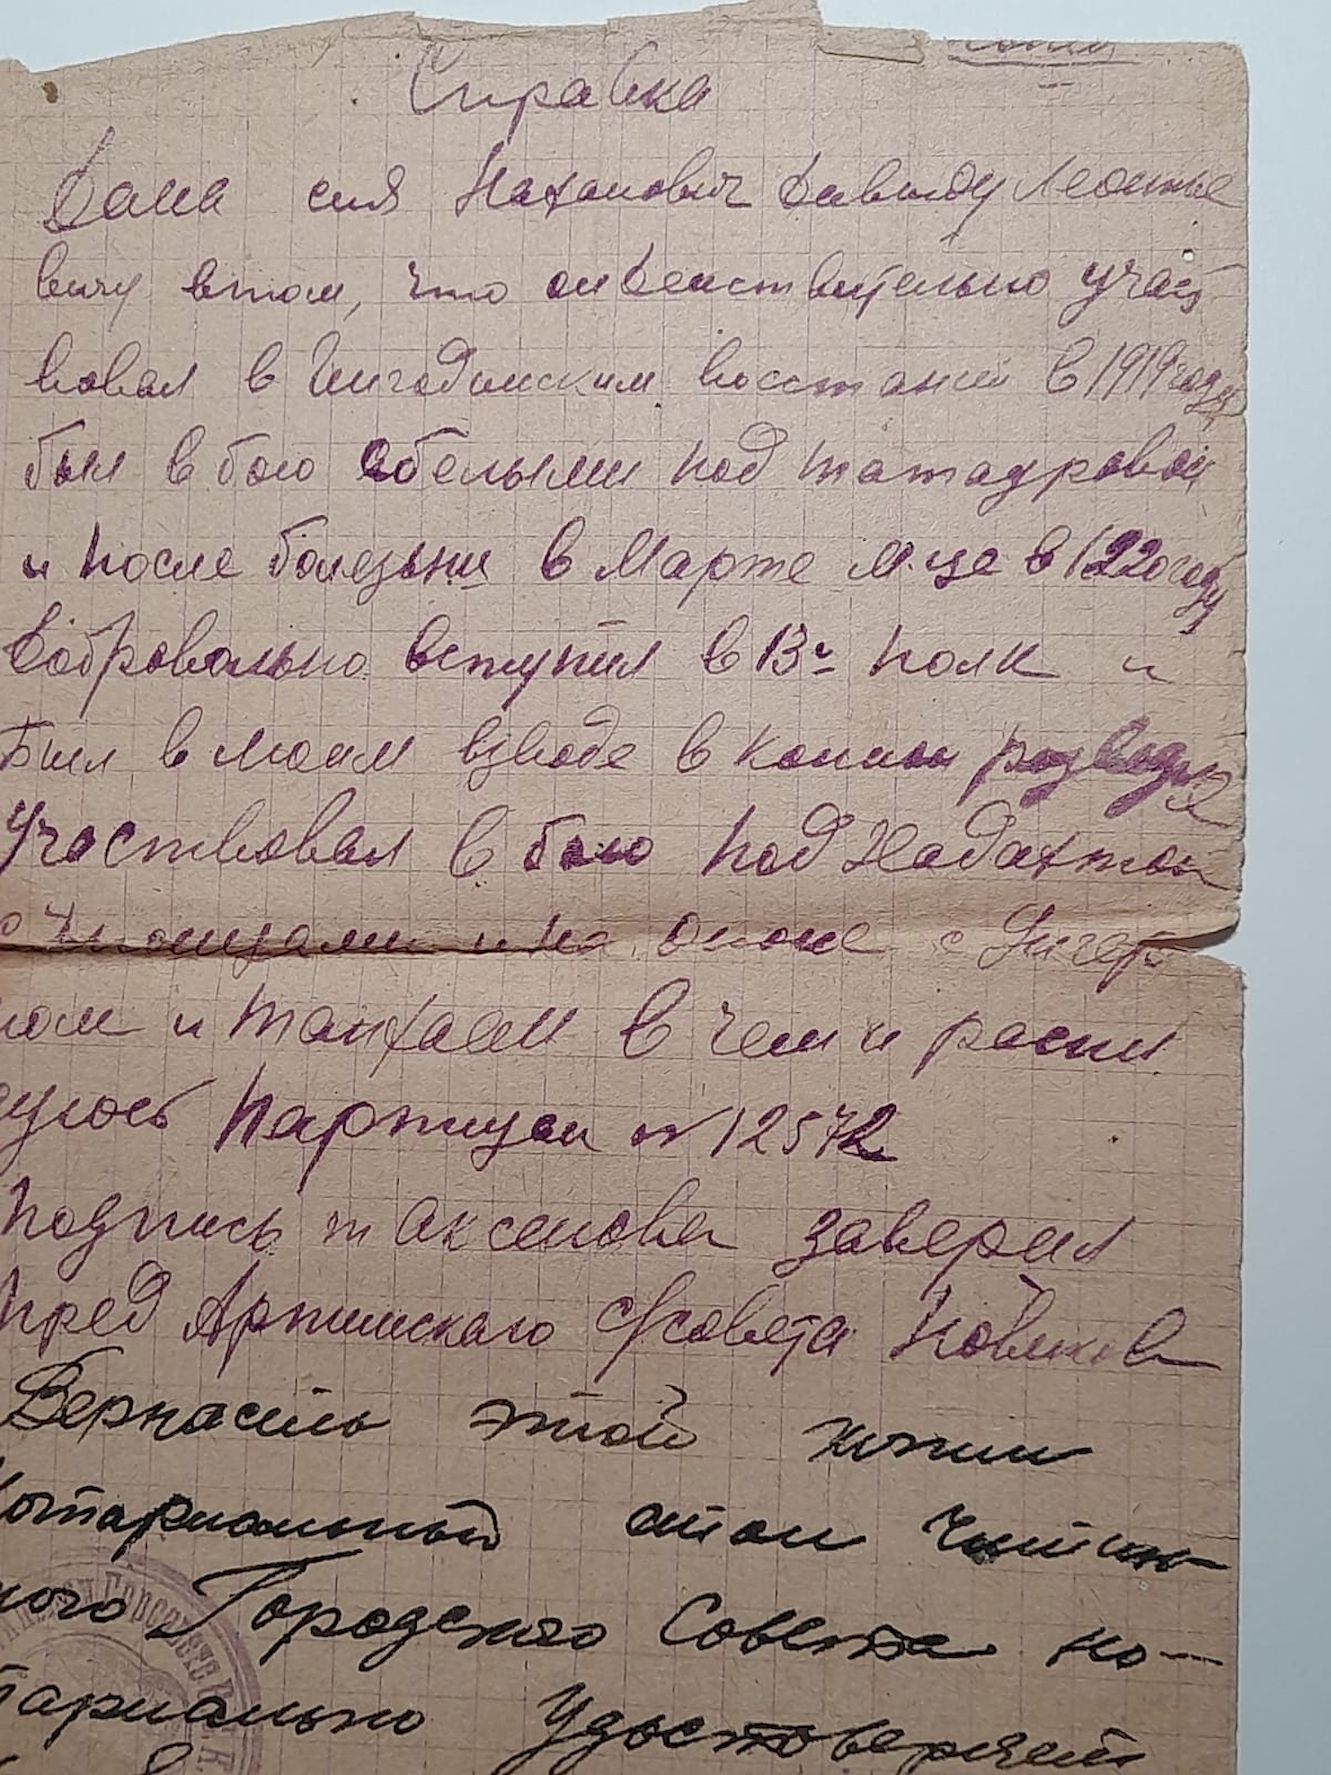 копия
Справка
Дана сия Натанович Давыду Леонтье
вичу втом, что он действительно участ
вовал в восстании в 1919 году
был в бою сбелыми под татауровой
и после болезьни в Марте м-це в 1920 году
Добровольно вступил в 13й полк и
Был в моем взводе в конной разведке
Участвовал в бою под
и на Ононе с Унгер
ном и в чем и распи
суюсь партизан № 12572
Подпись т Аксенова заверил
Пред с/совета Новиков
Верность этой копии
Нотариальный стол Читин-
ского Городского Совета но-
тариально Удостоверяет